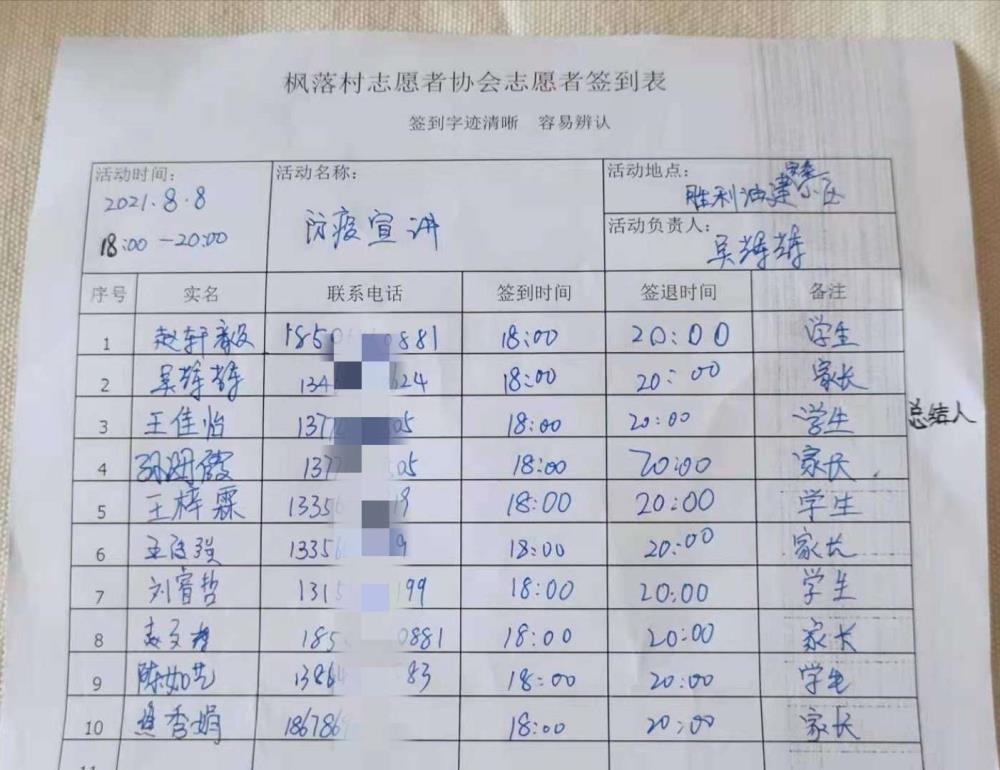 枫落村志愿者协会志愿者签到表
签到字迹清晰 容易辨认
活动时间: 2021.8.8 18:00-20:00
活动名称: 防疫宣讲
活动地点: 胜利油建
活动负责人:
序号 实名 联系电话 签到时间 签退时间 备注
1 赵轩毅 1850 0881 18:00 20:00 学生
2 134 624 18:00 20:00 家长
3 王佳怡 1377 505 18:00 20:00 学生 总结人
4 137 505 18:00 20:00 家长
5 王梓霖 13356 19 18:00 20:00 学生
6 13356 9 18:00 20:00 家长
7 刘睿哲 1315 199 18:00 20:00 学生
8 185 0881 18:00 20:00 家长
9 陈如艺 1386 83 18:00 20:00 学生
10 秀娟 186786 18:00 20:00 家长